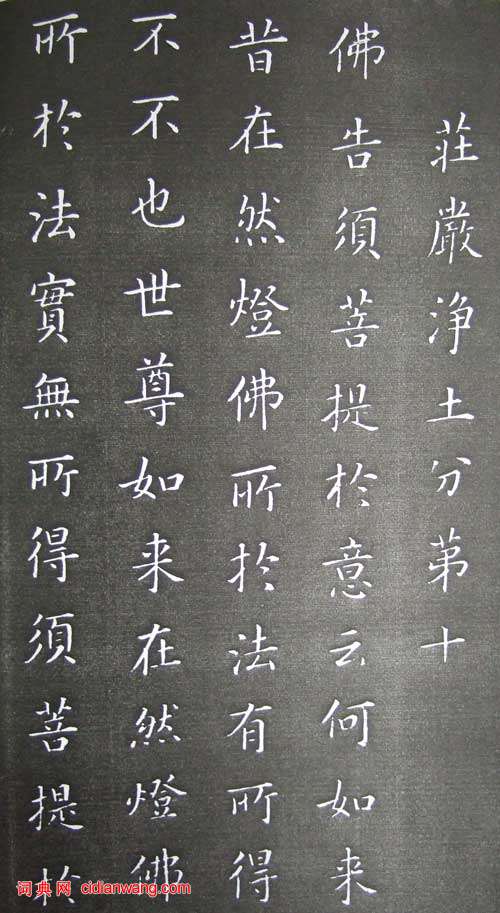 莊嚴浄土分苐十
佛告須菩提於意云何如来
昔在然燈佛所於法有所得
不不也世尊如来在然燈佛
所於法實無所得須菩提於
词典网 cidianwang.com